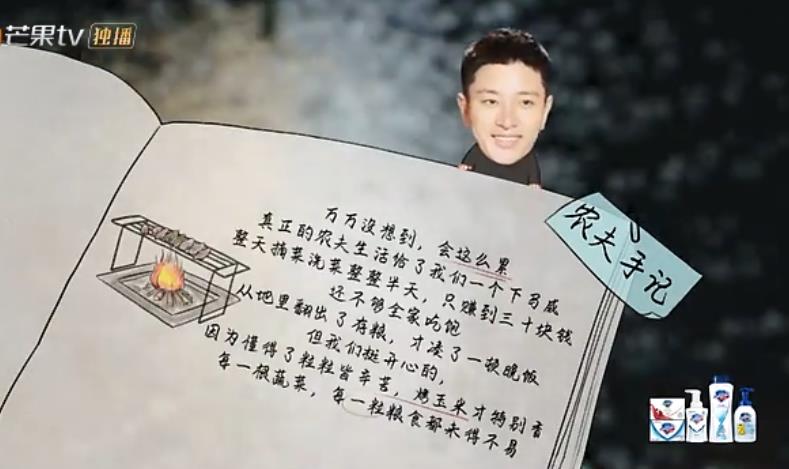 芒果tv 独播
农夫手记
万万没想到，会这么累
真正的农夫生活给了我们一个下马威
整天摘菜洗菜整整半天，只赚到三十块钱
还不够全家吃饱
从地里翻出了存粮，才凑了一顿晚饭
但我们挺开心的，
因为懂得了粒粒皆辛苦，烤玉米才特别香
每一根蔬菜，每一粒粮食都来得不易